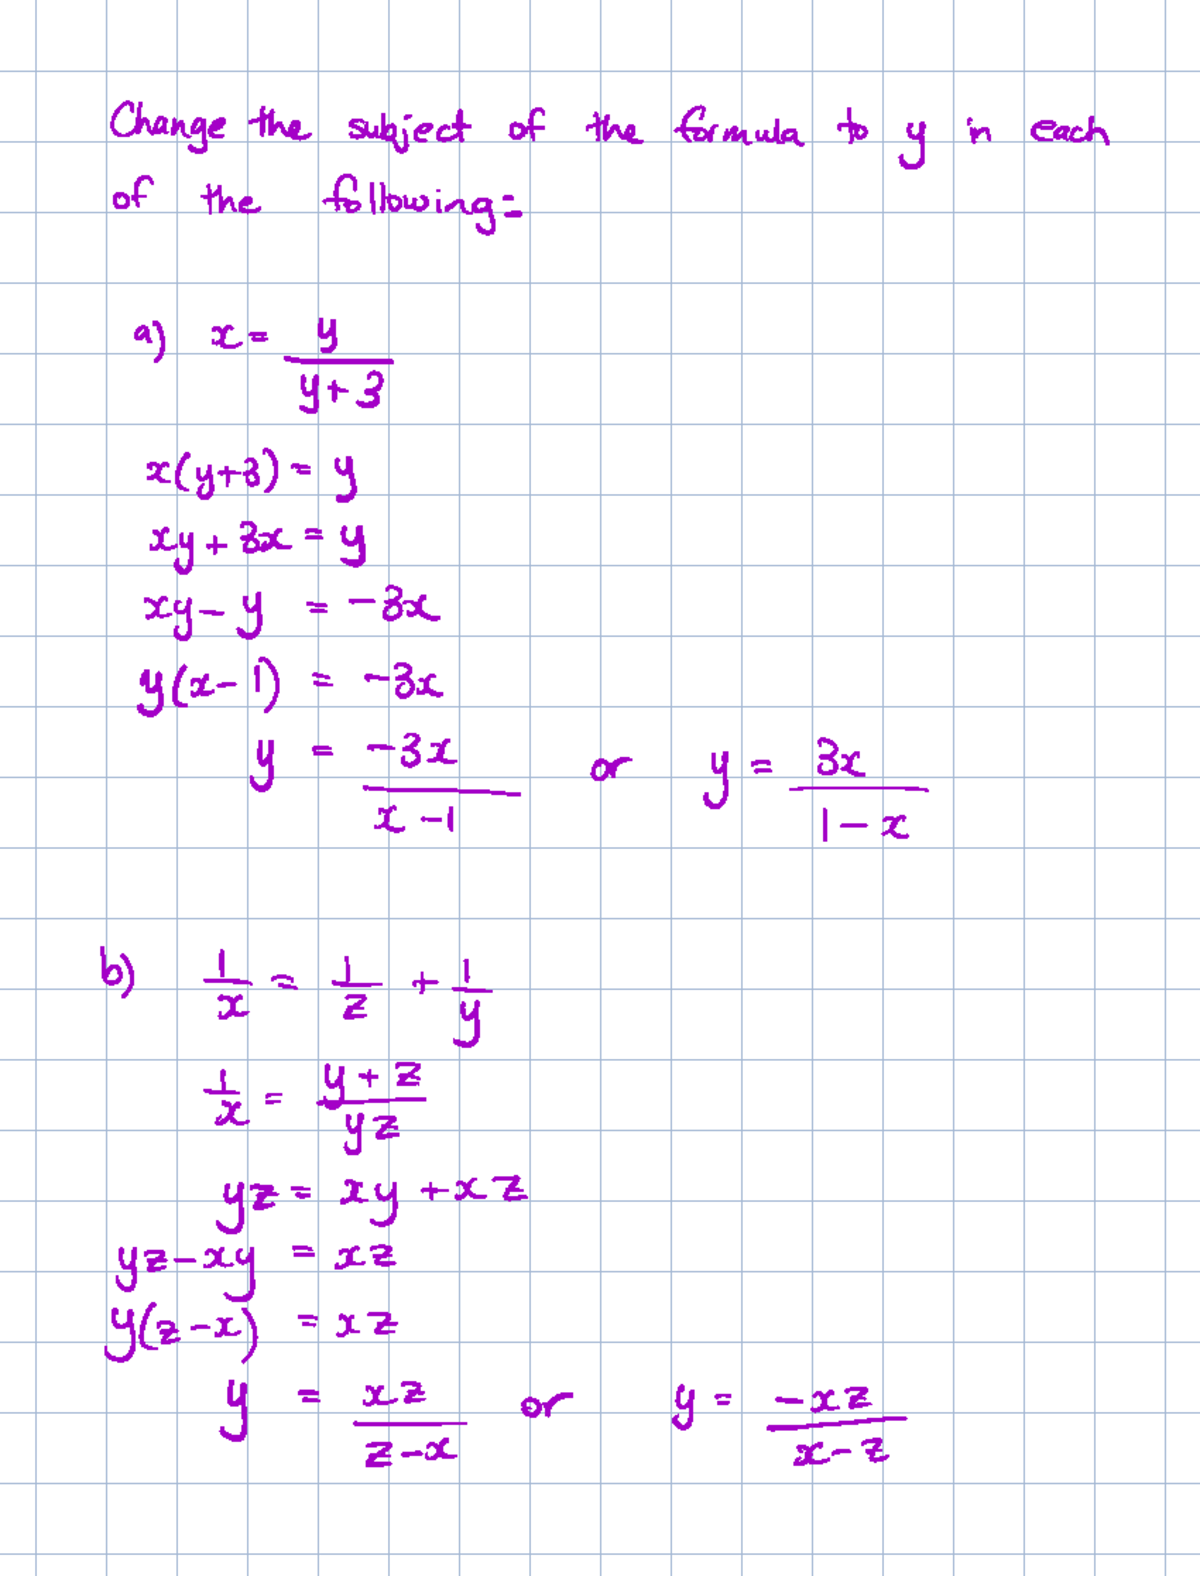 Change the subject of the formula to y in each
of the following:
a) x = y/(y+3)
x(y+3) = y
xy + 3x = y
xy - y = -3x
y(x-1) = -3x
y = -3x/(x-1) or y = 3x/(1-x)
b) 1/x = 1/z + 1/y
1/x = (y+z)/(yz)
yz = xy + xz
yz - xy = xz
y(z-x) = xz
y = xz/(z-x) or y = -xz/(x-z)